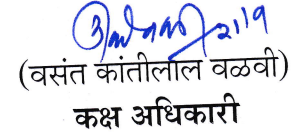 (वसंत कांतीलाल वळवी)
कक्ष अधिकारी